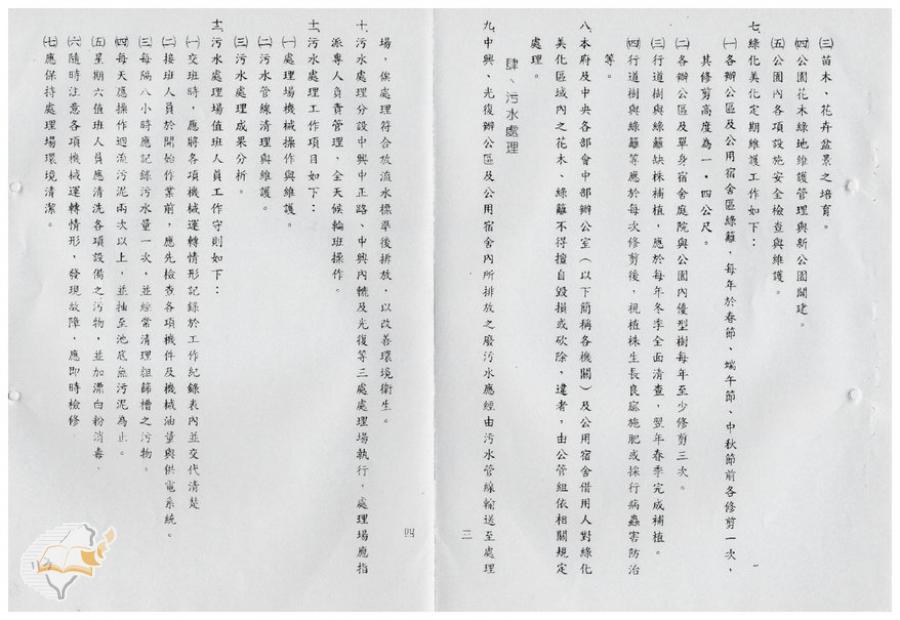 ㈢苗木、花卉盆景之培育。
㈣公園花木綠地維護管理與新公園闢建。
㈤公園內各項設施安全檢查與維護。
七、綠化美化定期維護工作如下：
㈠各辦公區及公用宿舍區綠籬，每年於春節、端午節、中秋節前各修剪一次，
其修剪高度為一．四公尺。
㈡各辦公區及單身宿舍庭院與公園內優型樹每年至少修剪三次。
㈢行道樹與綠籬缺株補植，應於每年冬季全面清查，翌年春季完成補植。
㈣行道樹與綠籬等應於每次修剪後，視植株生長良窳施肥或採行病蟲害防治
等。
八、本府及中央各部會中部辦公室（以下簡稱各機關）及公用宿舍借用人對綠化
美化區域內之花木、綠籬不得擅自毀損或砍除，違者，由公管組依相關規定
處理。
肆、污水處理
九、中興、光復辦公區及公用宿舍內所排放之廢污水應經由污水管線輸送至處理
三
場，俟處理符合放流水標準後排放，以改善環境衛生。
十、污水處理分設中興中正路、中興內轆及光復等三處處理場執行，處理場應指
派專人負責管理，全天候輪班操作。
十一、污水處理工作項目如下：
㈠處理場機械操作與維護。
㈡污水管線清理與維護。
㈢污水處理成果分析。
十二、污水處理場值班人員工作守則如下：
㈠交班時，應將各項機械運轉情形記錄於工作紀錄表內並交代清楚
㈡接班人員於開始作業前，應先檢查各項機件及機械油量與供電系統。
㈢每隔八小時應記錄污水量一次，並經常清理粗篩槽之污物。
㈣每天應操作迴流污泥兩次以上，並抽至池底無污泥為止。
㈤星期六值班人員應清洗各項設備之污物，並加漂白粉消毒、
㈥隨時注意各項機械運轉情形，發現故障，應即時檢修
㈦應保持處理場環境清潔。
四